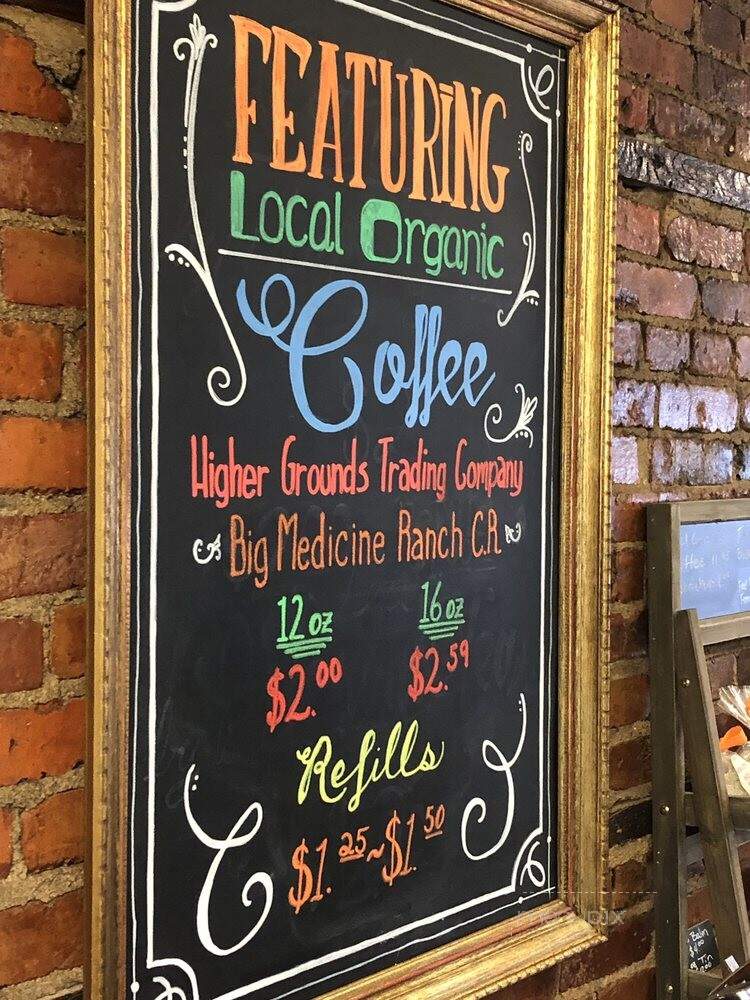 FEATURING
Local Organic
Coffee
Higher Grounds Trading Company
Big Medicine Ranch C.R
12 oz 16 oz
$2.00 $2.59
Refills
$1.25~$1.50